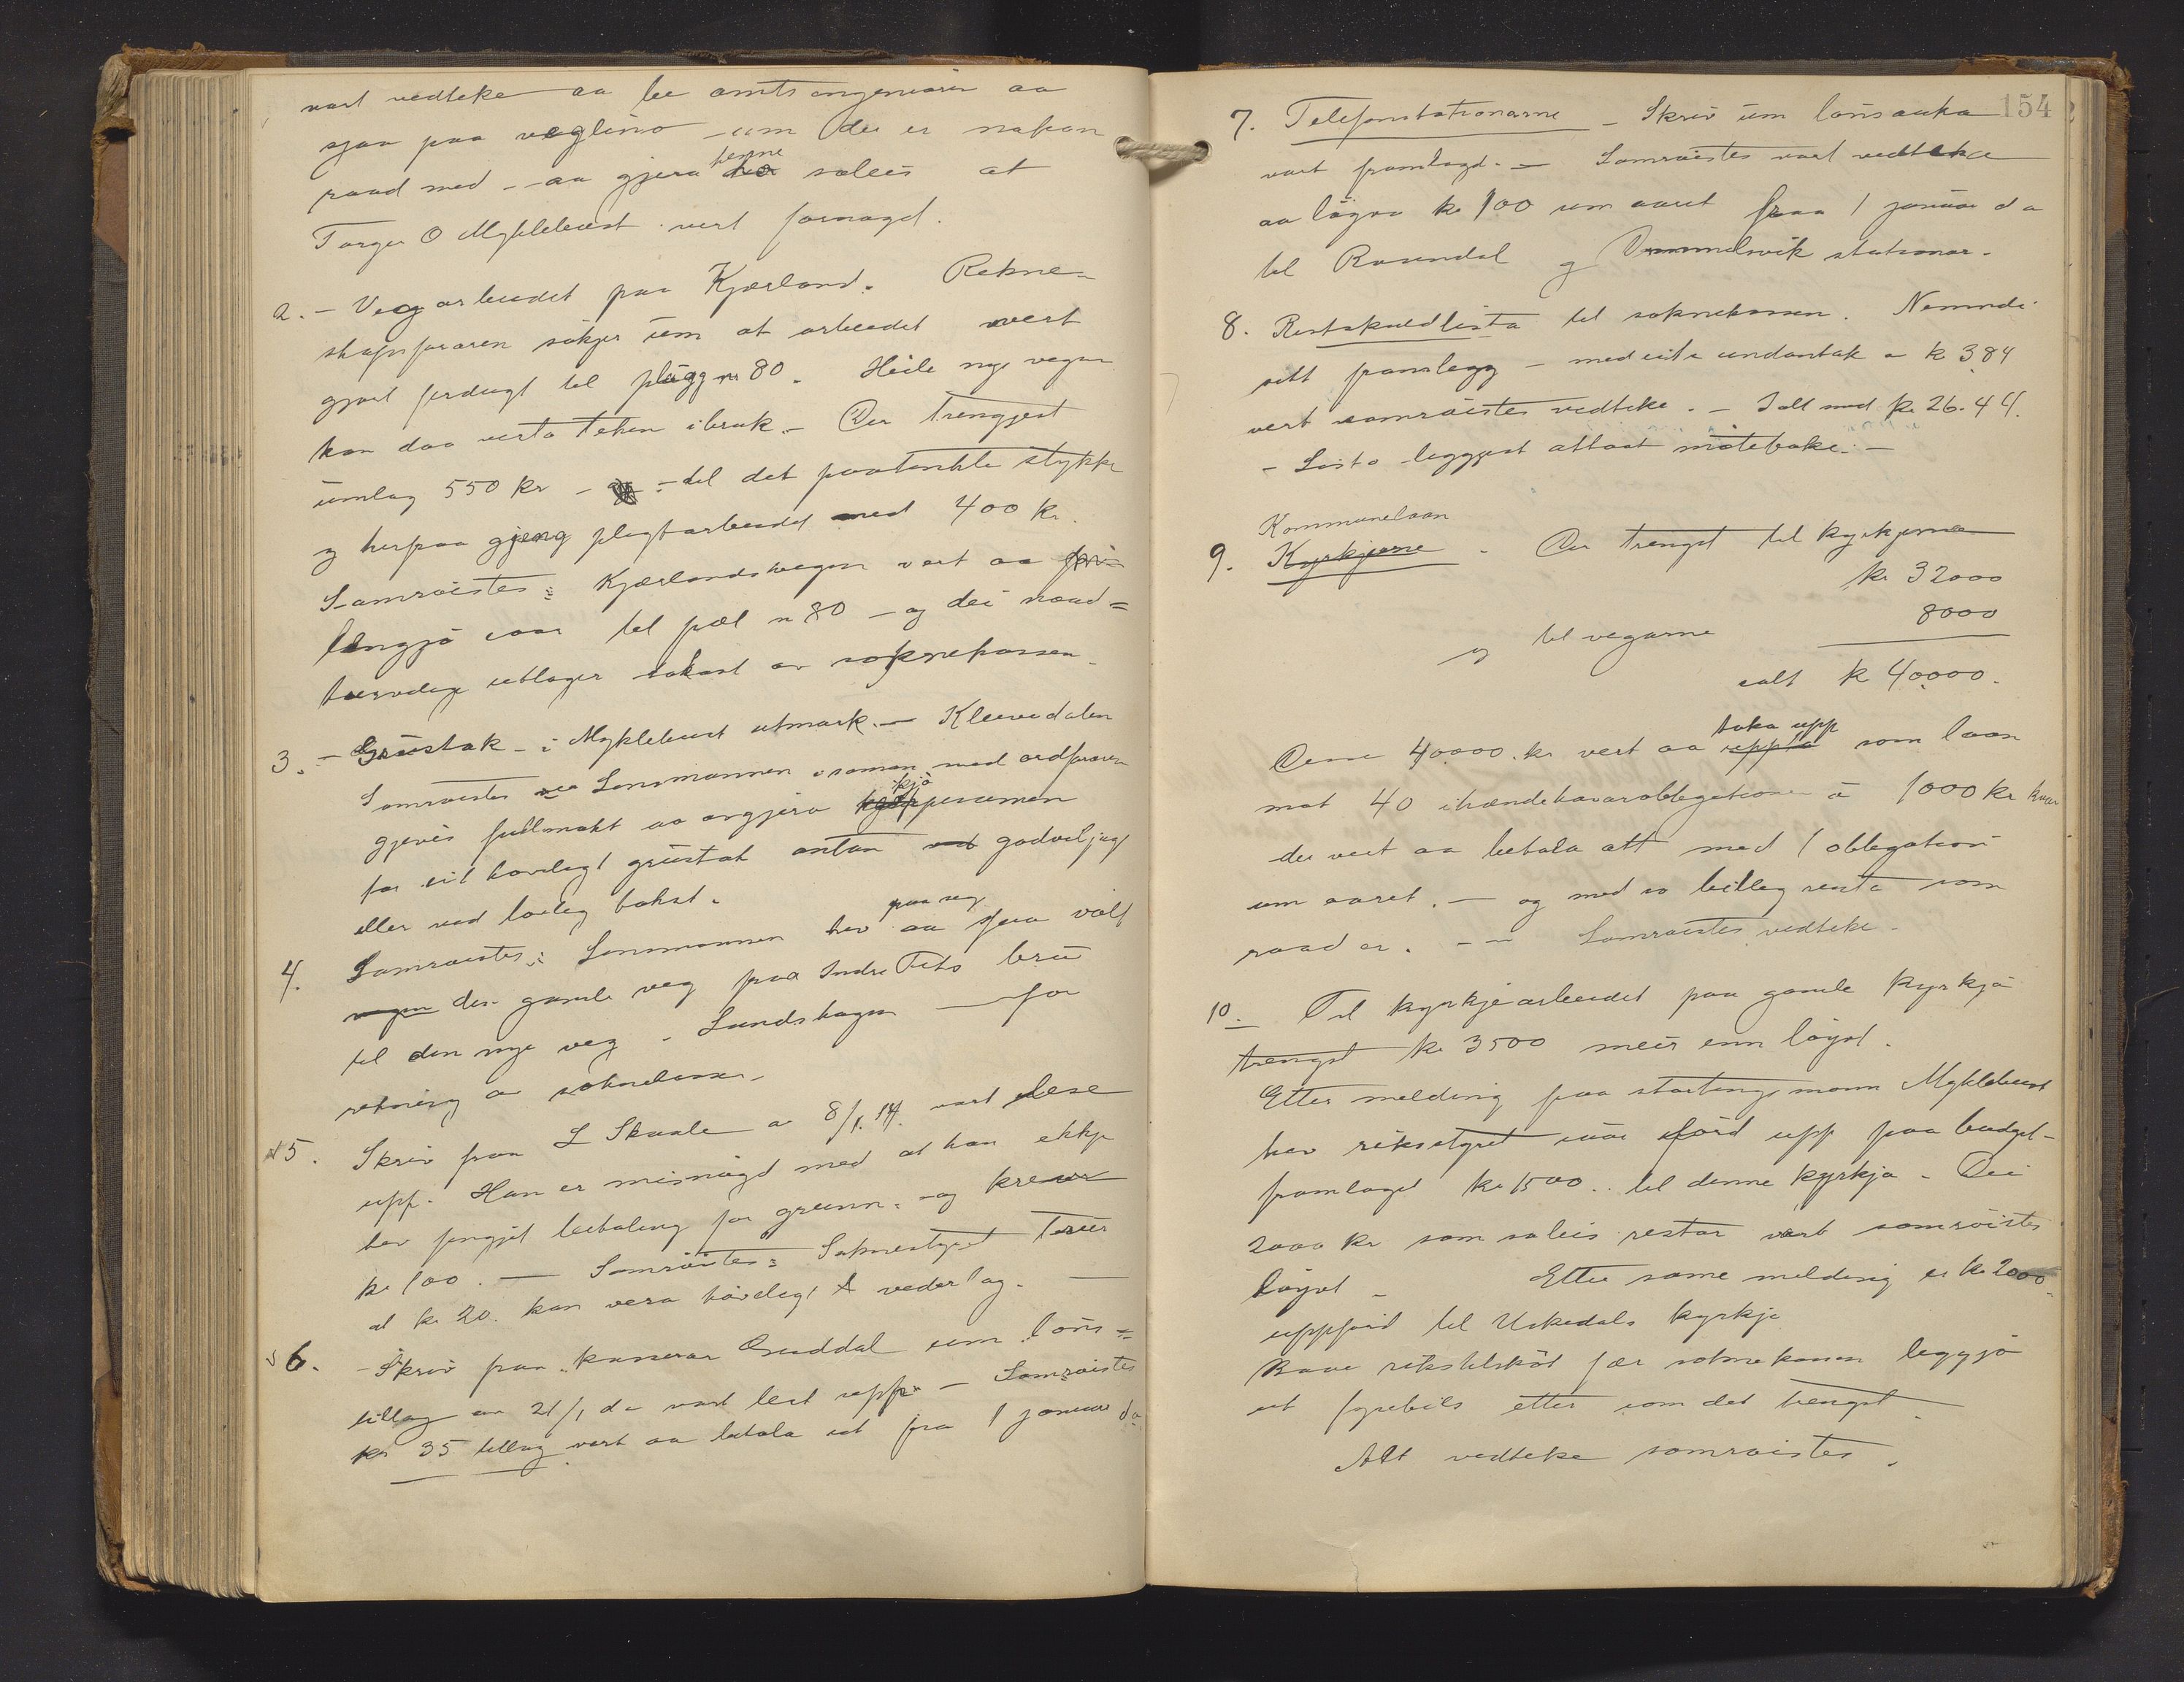 vart vedteke aa be amtsingeniören aa
sjaa paa veglino um der er nokon
raad med - aa gjera henne soleis at
Torger O Myklebust vert fornögd.
2. - Vegarbeidet paa Kjærland. Rekne-
skapsföraren sökjer um at arbeidet vert
gjort ferdugt til plugg nr 80. Heile nye vegen
kan daa verta teken ibruk. - Der trengjest
umlag 550 kr - til det paatenkte stykke
og herpaa gjeng pligtarbeidet med 400 kr.
Samröistes: Kjærlandsvegen vert aa
lengja til pæl n 80 - og dei naud=
turvelege utlogor tokest av soknekassen.
3. - Grustak i Myklebust utmark. - Kleivedalen
Samröistes Lensmannen saman med ordföraren
gjeves fullmakt aa avgjera kjöpesummen
for eit höveleg grustak antan godviljugt
eller ved lovleg takst.
4. Samröistes: Lensmannen hev paa seg aa sjaa völt
den gamle veg paa Indre Tets bru
til den nye veg - Lundshagen - for
rekning av soknekassa.
5. Skriv fraa L Skaale av 8/1. 14. vart lese
upp. Han er misnögd med at han ekkje
hev fengjet betaling for grunn. og krever
kr 100. - Samröistes: Soknestyret trur
at kr 20. kan vera hövelegt vederlag. -
6. - Skriv fraa kasserar Guddal um löns=
tillag av 21/1 da vart lest upp. - Samröistes
kr 35 tillag vert aa betala ut fra 1 januar da
154
7. Telefonstationarne - Skriv um lönsauka
vart framlagd. - Samröistes vart vedteke
aa löyva kr 100 um aaret fraa 1 januar da
til Rosendal og Ommelsvik stationar.
8. Restskuldlista til soknekassen. Nemndi
sitt framlegg - med eitt undantak - kr 3,84
vert samröistes vedteke. - Ialt med kr. 26.44.
- Lista leggjest attaat möteboki. -
Kommunelaan
9. Kyrkjorne - Der trengst til kyrkjorne
kr 32000
og til vegarne 8000
ialt kr 40000.
Desse 40000 kr vert aa taka upp som laan
mot 40 ihændehavarobligationer à 1000 kr kvar
der vert aa betala att med 1 obligation
um aaret. - og med so billeg renta som
raad er. - - Samröistes vedteke.
10. Til kyrkjearbeidet paa gamle kyrkja
trengst kr 3500 meir enn löyvt.
Etter melding fraa stortingsmann Myklebust
hev riksstyret förd upp paa budget-
framlaget kr 1500.. til denne kyrkja - Dei
2000 kr som soleis restar vart samröistes
löyvt - Etter same melding er kr 2000
uppförd til Uskedals kyrkje
Baae rikstilskot fær soknekassen leggja
ut fyrebils etter som det trengst.
Alt vedteke samröistes.